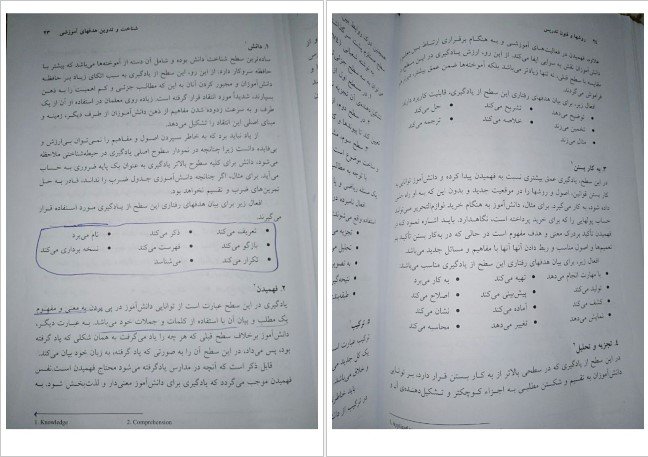 شناخت و تدوین هدفهای آموزشی ۲۳
۱. دانش
ساده‌ترین سطح شناخت دانش بوده و شامل آن دسته از آموخته‌ها می‌باشد که بیشتر با
حافظه سروکار دارد. از این رو، این سطح از یادگیری به سبب اتکای زیاد بر حافظه
دانش‌آموزان و مجبور کردن آنان به این که مطالب جزئی و کم اهمیت را به ذهن
بسپارند، شدیداً مورد انتقاد قرار گرفته است. زیاده روی معلمان در استفاده از آن از یک
طرف و به سرعت زدوده شدن مفاهیم از ذهن دانش‌آموزان از طرف دیگر، زمینه و
مبنای اصلی این انتقاد را تشکیل می‌دهد.
از یاد نباید برد که به خاطر سپردن اصول و مفاهیم را نمی‌توان بی‌ارزش و
بی‌فایده دانست زیرا چنانچه در نمودار سطوح اصلی یادگیری در حیطه‌شناختی ملاحظه
می‌شود، دانش برای کلیه سطوح بالاتر یادگیری به عنوان یک پایه ضروری به حساب
می‌آید. برای مثال، اگر چنانچه دانش‌آموزی جدول ضرب را نداند، قادر به حل
تمرین‌های ضرب و تقسیم نخواهد بود.
افعال زیر برای بیان هدفهای رفتاری این سطح از یادگیری مورد استفاده قرار
می‌گیرند.
• تعریف می‌کند • ذکر می‌کند • نام می‌برد
• بازگو می‌کند • فهرست می‌کند • نسخه برداری می‌کند
• تکرار می‌کند • می‌شناسد
۲. فهمیدن۱
یادگیری در این سطح عبارت است از توانایی دانش‌آموز در پی بردن به معنی و مفهوم
یک مطلب و بیان آن با استفاده از کلمات و جملات خود می‌باشد. به عبارت دیگر،
دانش‌آموز برخلاف سطح قبلی که هر چه را یاد می‌گرفت به همان شکلی که یاد گرفته
بود، پس می‌داد، در این سطح آن را به صورتی که یاد گرفته، به زبان خود بیان می‌کند.
قابل ذکر است که آنچه در مدارس یادگرفته می‌شود محتاج فهمیدن است. نفس
فهمیدن موجب می‌گردد که یادگیری برای دانش‌آموز معنی‌دار و لذت‌بخش شود. به
1. Knowledge 2. Comprehension
۲۴ روشها و فنون تدریس
علاوه، فهمیدن در فعالیت‌های آموزشی و به هنگام برقراری ارتباط بین معلم و
دانش‌آموزان نقش به سزایی ایفا می‌کند. از این رو، ارزش یادگیری در این سطح در
مقایسه با سطح قبلی، نه تنها زیادتر می‌باشد بلکه آموخته‌ها ضمن عمق بیشتر، دیرتر
فراموش می‌گردند.
افعال زیر، برای بیان هدفهای رفتاری این سطح از یادگیری، قابلیت کاربرد دارند.
• توضیح می‌دهد • تشریح می‌کند • حل می‌کند
• تخمین می‌زند • خلاصه می‌کند • ترجمه می‌کند
• مثال می‌زند
۳. به کار بستن
در این سطح، یادگیری عمق بیشتری نسبت به فهمیدن پیدا کرده و دانش‌آموز توانایی به
کار بستن قوانین، اصول و روشها را در موقعیت جدید و بدون این که به او راه حلی
داده شود، به کار می‌گیرد. برای مثال، دانش‌آموز به هنگام خرید لوازم‌التحریر می‌تواند
حساب پولهایی را که برای خرید پرداخته است، نگاهدارد. باید اشاره نمود که در
فهمیدن تأکید بر درک معنی و هدف مفهوم است در حالی که در به‌کار بستن تأکید بر
تعمیم‌ها و اصول مناسب و ربط دادن آنها با مفاهیم و مسائل جدید می‌باشد.
افعال زیر، برای بیان هدفهای رفتاری این سطح از یادگیری مناسب می‌باشد.
• با مهارت انجام می‌دهد • تهیه می‌کند • به کار می‌برد
• تولید می‌کند • پیش‌بینی می‌کند • اصلاح می‌کند
• کشف می‌کند • آماده می‌کند • نشان می‌کند
• نمایش می‌دهد • تغییر می‌دهد • محاسبه می‌کند
۴. تجزیه و تحلیل۱
در این سطح از یادگیری که در سطحی بالاتر از به کار بستن قرار دارد، بر توانایی
دانش‌آموزان به تقسیم و شکستن مطلبی به اجزاء کوچکتر و تشکیل‌دهنده‌ی آن و